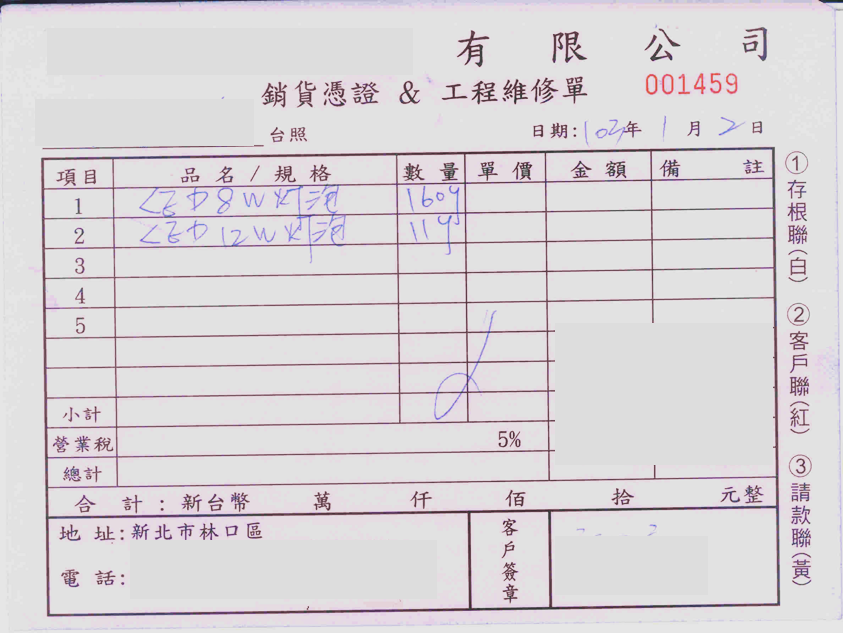 有限公司
銷貨憑證 & 工程維修單 001459
台照 日期: 103年 1月 2日
項目 品名/規格 數量 單價 金額 備註
1 LED 8W 灯泡 160
2 LED 12W 灯泡 11
3
4
5
小計
營業稅 5%
總計
合計:新台幣 萬 仟 佰 拾 元整
地址:新北市林口區
電話:
客戶簽章
①存根聯(白) ②客戶聯(紅) ③請款聯(黃)